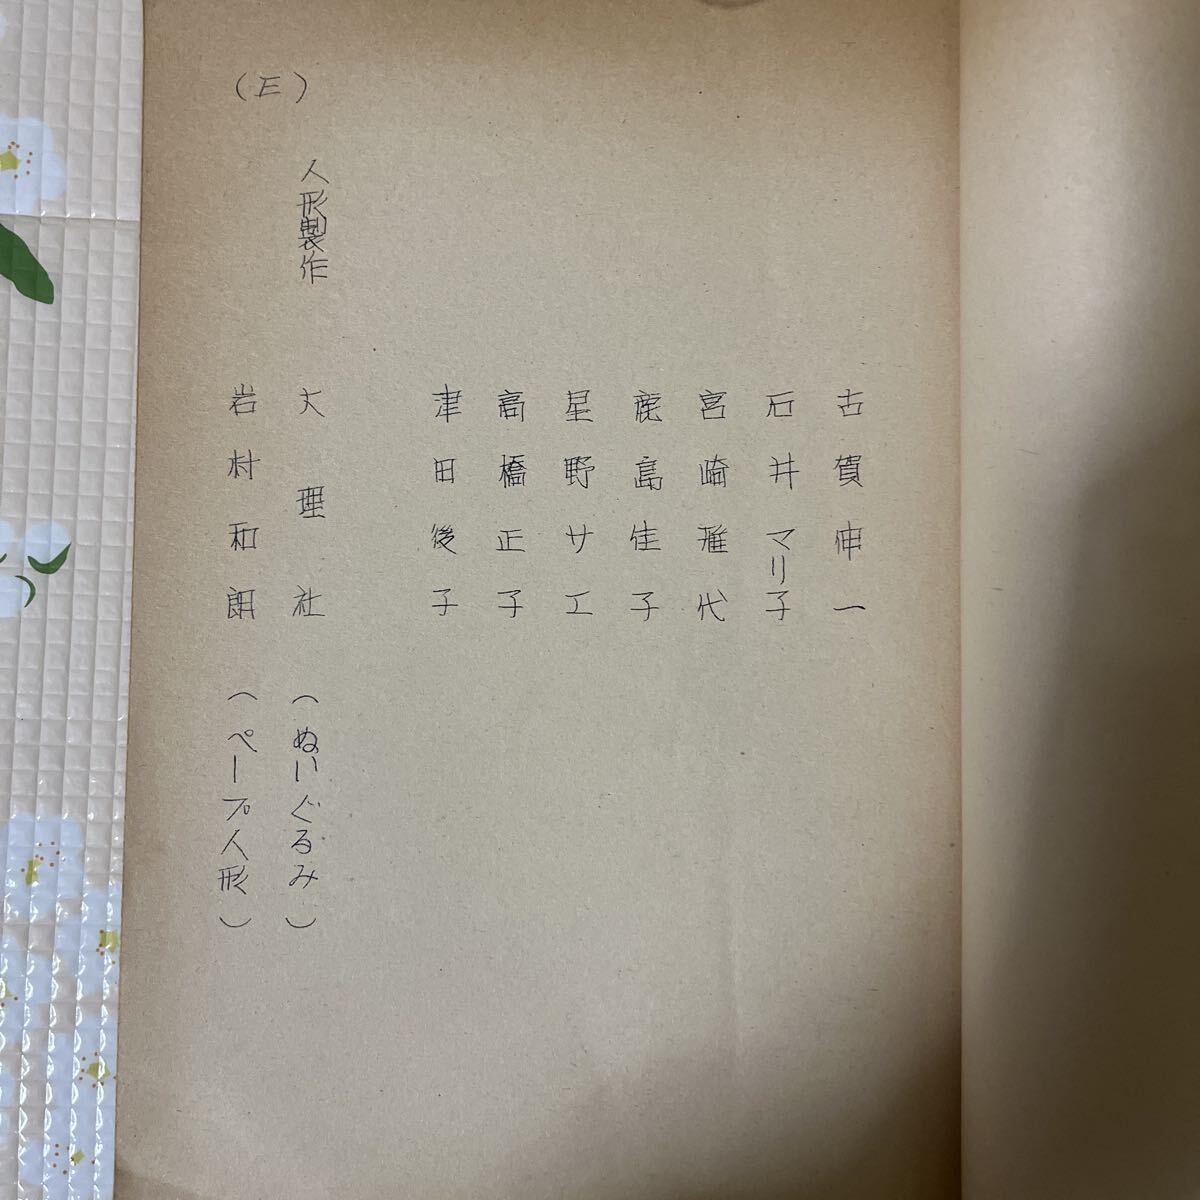 古賀伸一
石井マリ子
宮崎雅代
鹿島佳子
星野サエ
高橋正子
津田後子
人形製作 大理社 (ぬいぐるみ)
岩村和朗 (ペープ人形)
(E)